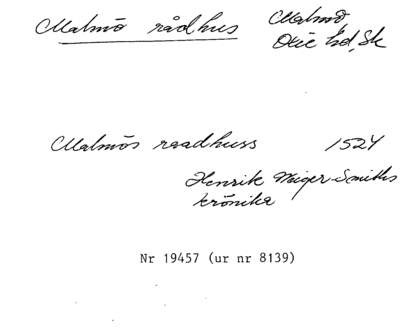 Malmö rådhus
Malmö
Oxie hd, Sk
Malmös raadhuss 1524
Henrik Meiger-Smiths
krönika
Nr 19457 (ur nr 8139)